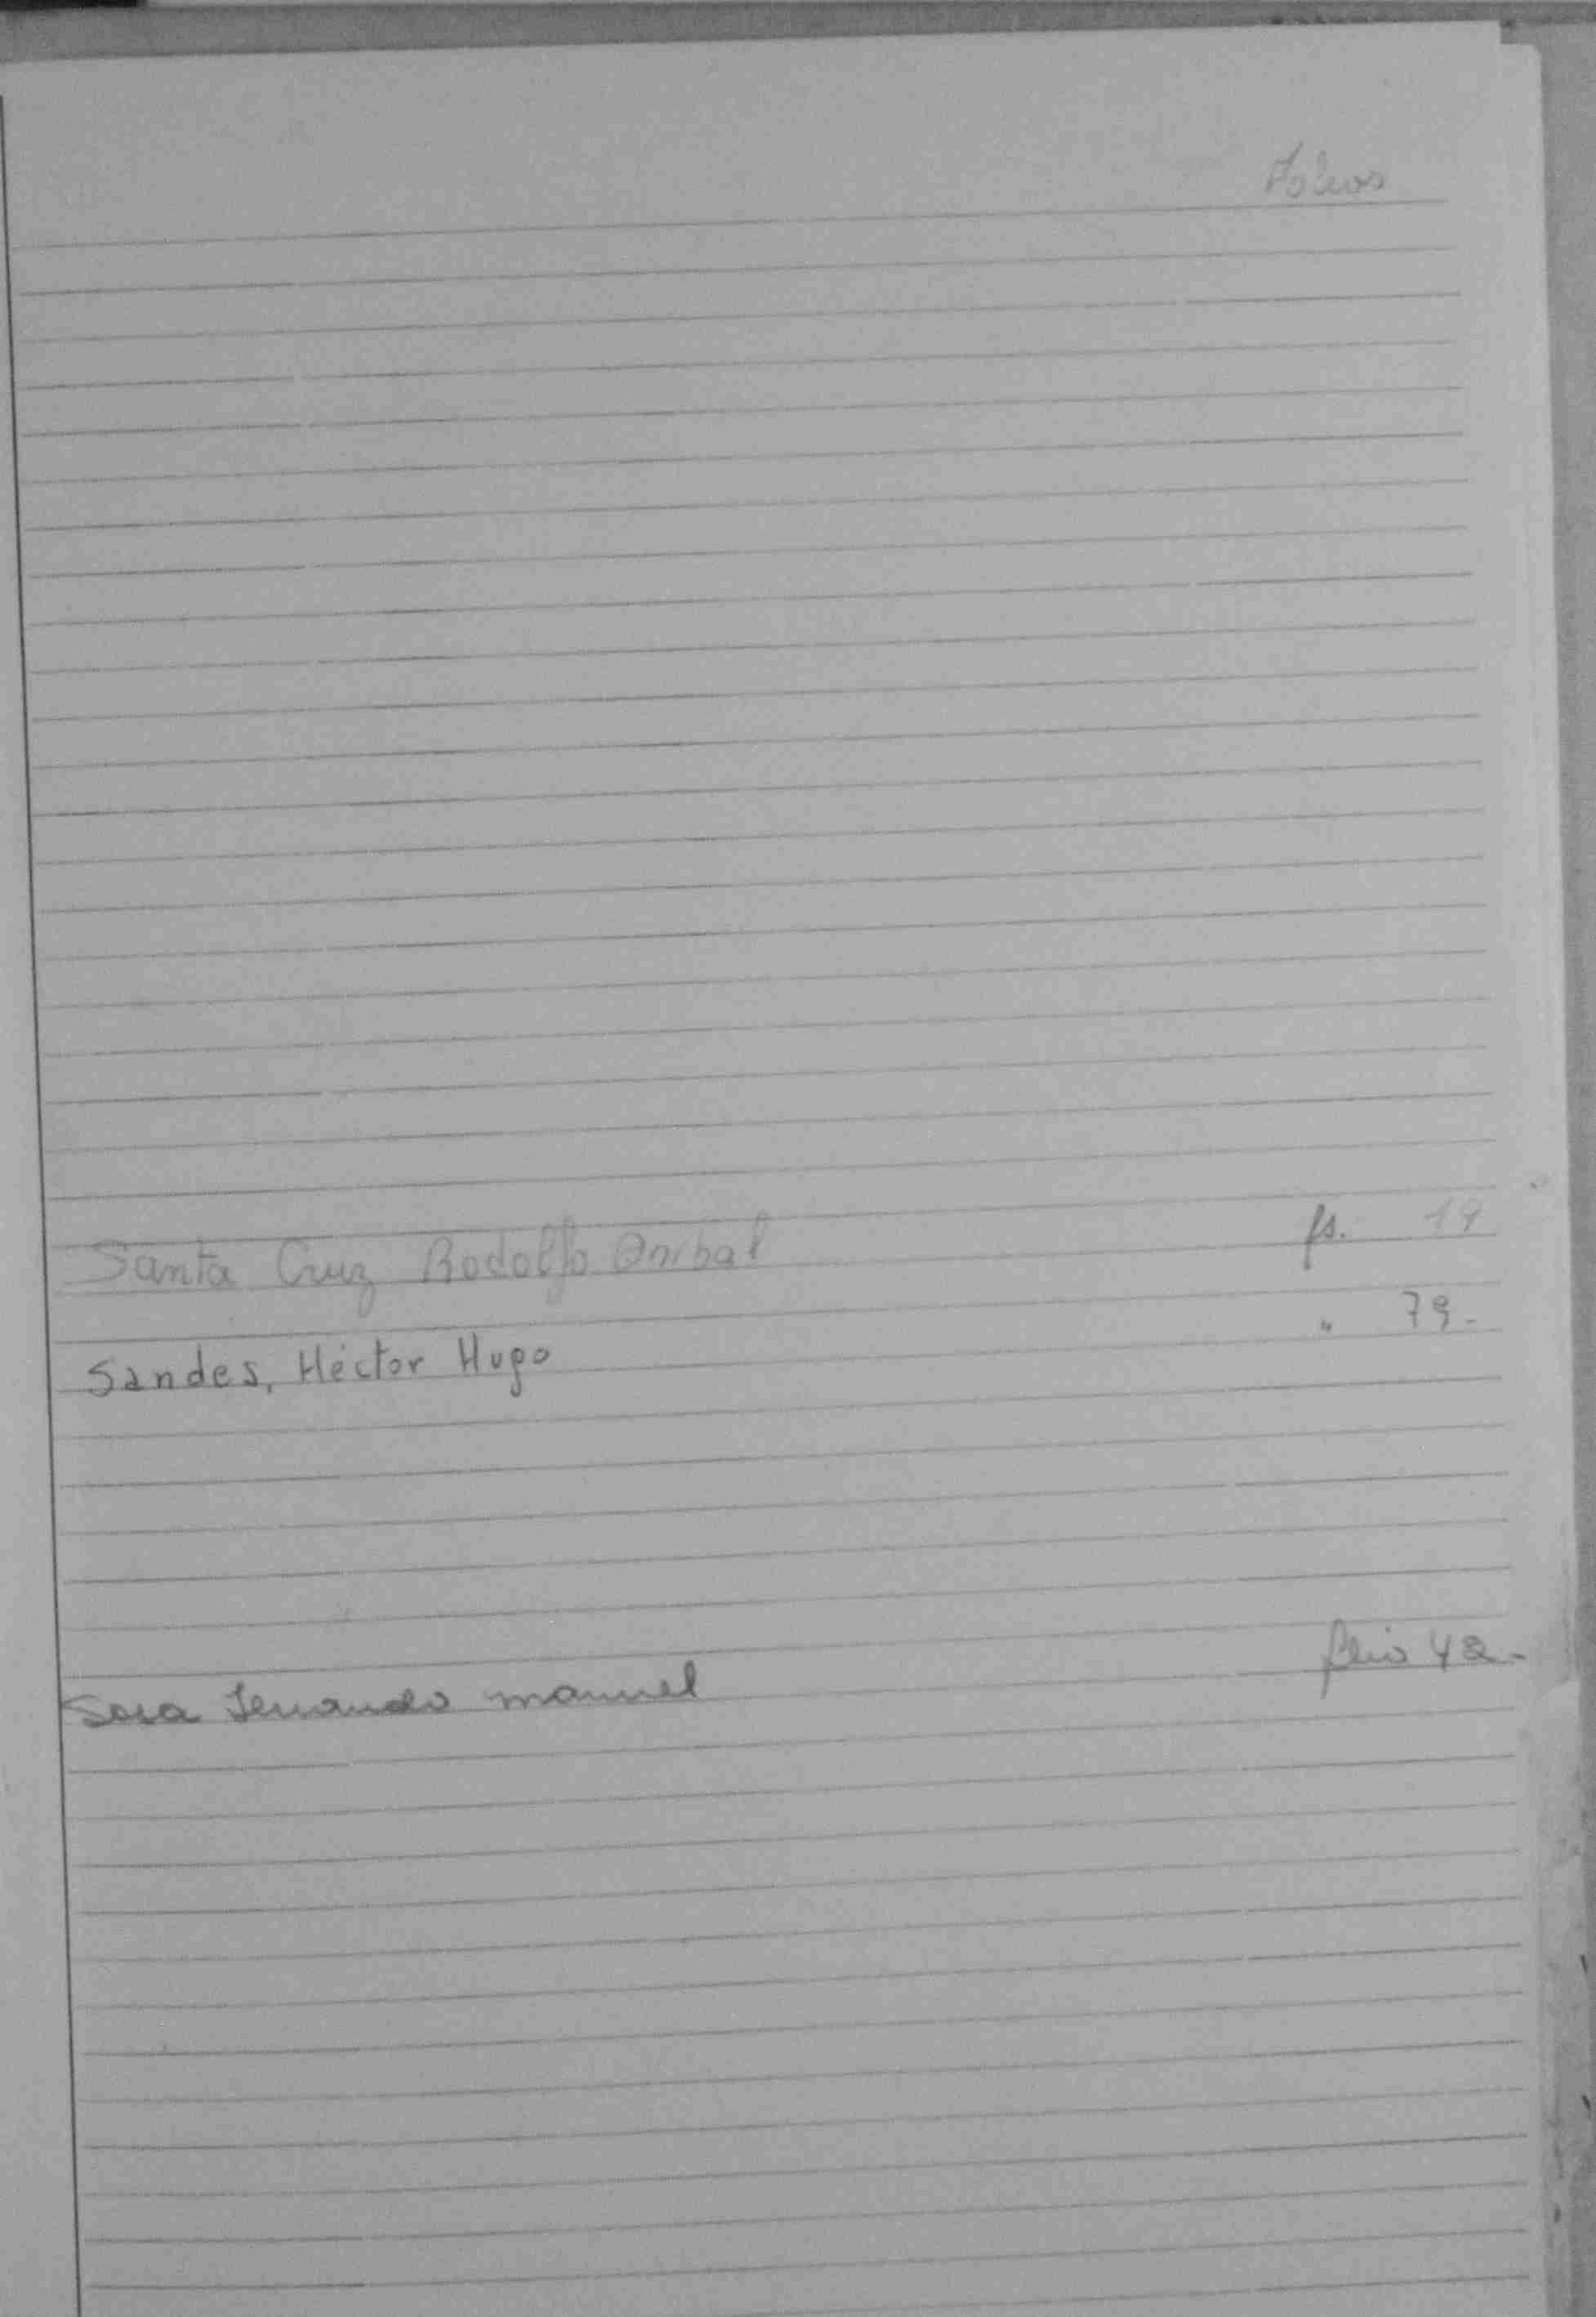 Folios
Santa Cruz Rodolfo Anibal fs. 19
Sandes, Héctor Hugo " 79-
Sosa Fernando manuel folio 42-